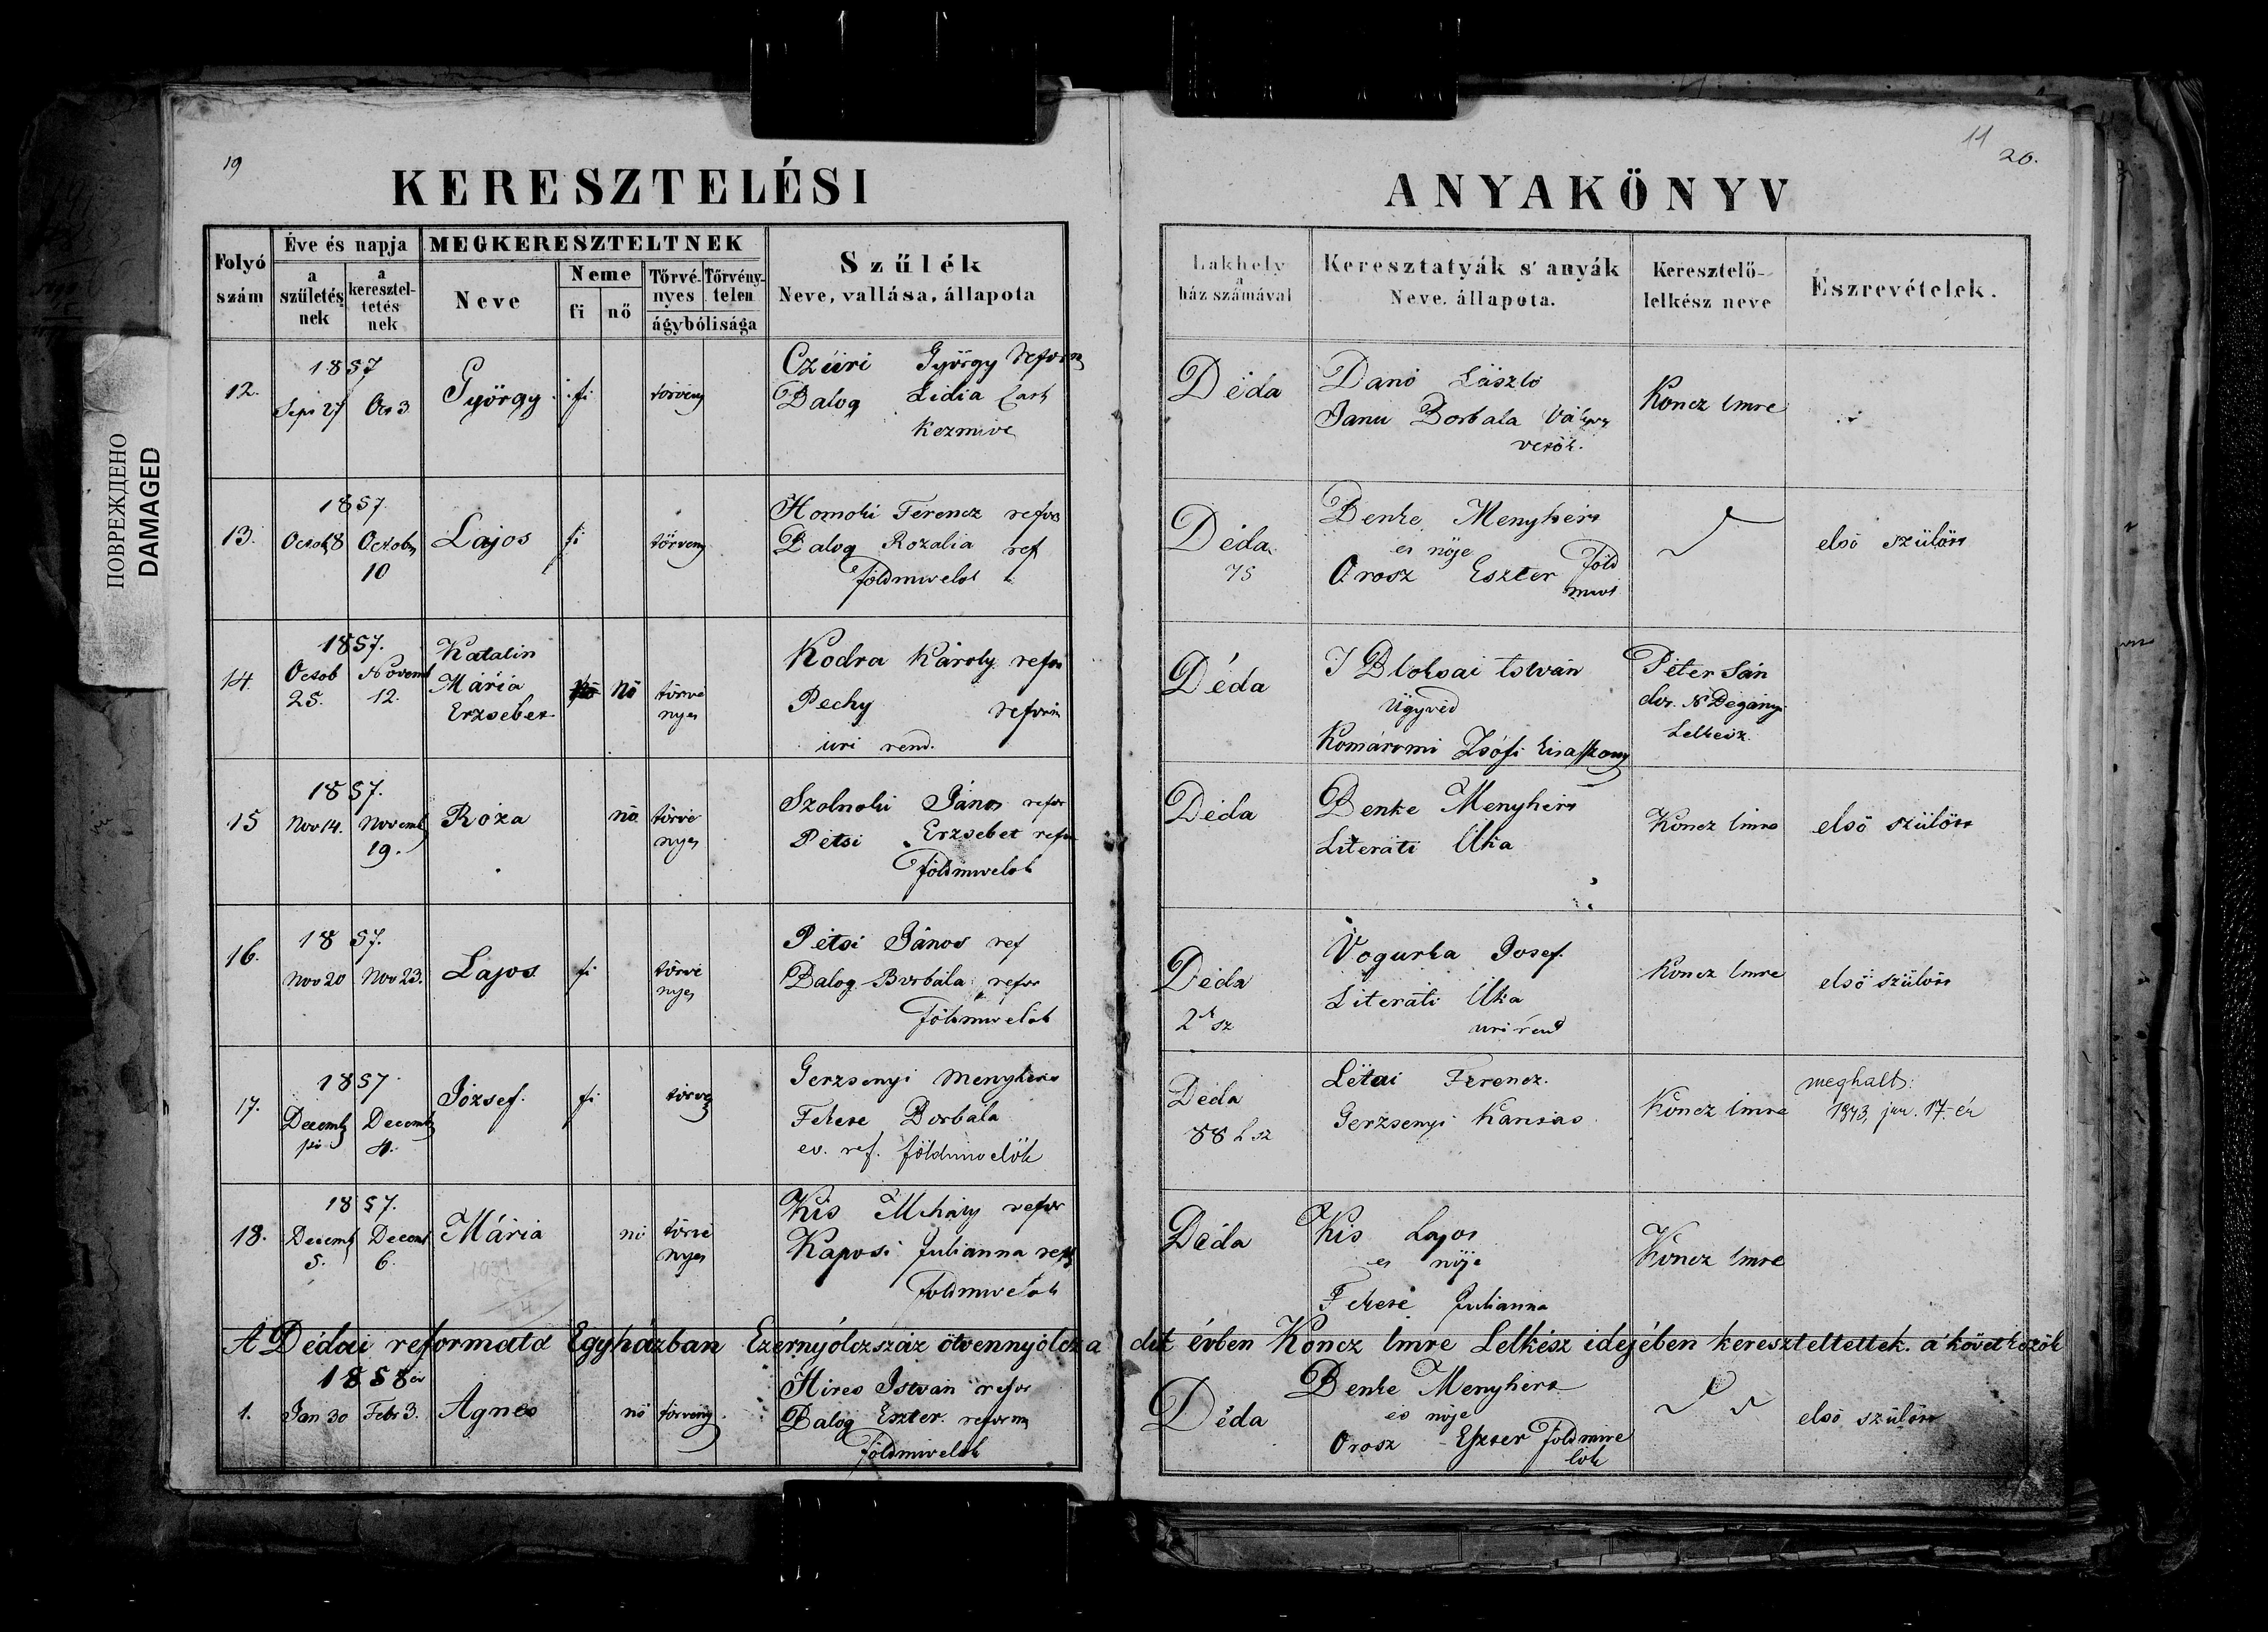 19
11
20.
KERESZTELÉSI ANYAKÖNYV
Folyó szám
Éve és napja
a születésnek
a kereszteltetésnek
MEGKERESZTELTNEK
Neve
Neme
fi
nő
Törvényes
Törvénytelen
ágybólisága
Szűlék
Neve, vallása, állapota
Lakhely
a
ház számával
Keresztatyák s' anyák
Neve, állapota.
Keresztelő-
lelkész neve
Észrevételek.
12.
1857
Sept 27
Oct 3
György
fi
törvény
Czüri György reform
Balog Lidia
kezmive
Déda
Danó László
Janu Borbala
Koncz Imre
13.
1857.
Octob 8
Octob
10
Lajos
fi
törveny
Homoki Ferencz refor
Balog Rozalia ref
földmivelok
Déda
75
Benke Menyhért
es nöje
Orosz Eszter Föld
mivs
első szülött
14.
1857.
Octob
25.
Novemb
12.
Katalin
Mária
Erzsebet
nö
törvé
nyes
Kodra Károly refor
Pechy reform
úri rend.
Déda
Istvàn
Ügyvéd
Komáromi Zsófi kisasszony
Péter Sán
dor. N Dégányi
Lelkész
15
1857.
Nov 14.
Novemb
19.
Róza
nö
törvé
nyes
Szolnoki János refor
Pétsi Erzsebet refor
földmivelok
Déda
Benke Menyhért
Literáti Ilka
Koncz Imre
első szülött
16.
1857.
Nov 20
Nov 23.
Lajos
fi
törvé
nyes
Pétsi János ref
Balog Borbála refor
földmivelők
Déda
2 sz
Vogurka Josef.
Literáti Ilka
uri rend
Koncz Imre
első szülött
17.
1857
Decemb
Decemb
4.
József.
fi
törvé
Gerzsenyi Menyhért
Fekete Borbála
ev. ref. földmivelők
Déda
88 h sz
Létai Ferencz.
Gerzsenyi
Koncz Imre
meghalt:
17-én
18.
1857.
Decemb
5.
Decemb
6.
Mária
nö
törvé
nyes
Kis Mihály refor
Kaposi Julianna ref
földmivelők
Déda
Kis Lajos
es nöje
Fekete Julianna
Koncz Imre
A Dédai reformata Egyházban Ezernyólczszáz ötvennyólcza dik évben Koncz Imre Lelkész idejében kereszteltettek. a' következők
1858
1.
Jan 30
Febr 3.
Agnes
nö
törvény
Hires István refor
Balog Eszter reform
földmivelok
Déda
Benke Menyhért
es nöje
Orosz Eszter Földmive
lök
első szülött
ПОВРЕЖДЕНО
DAMAGED